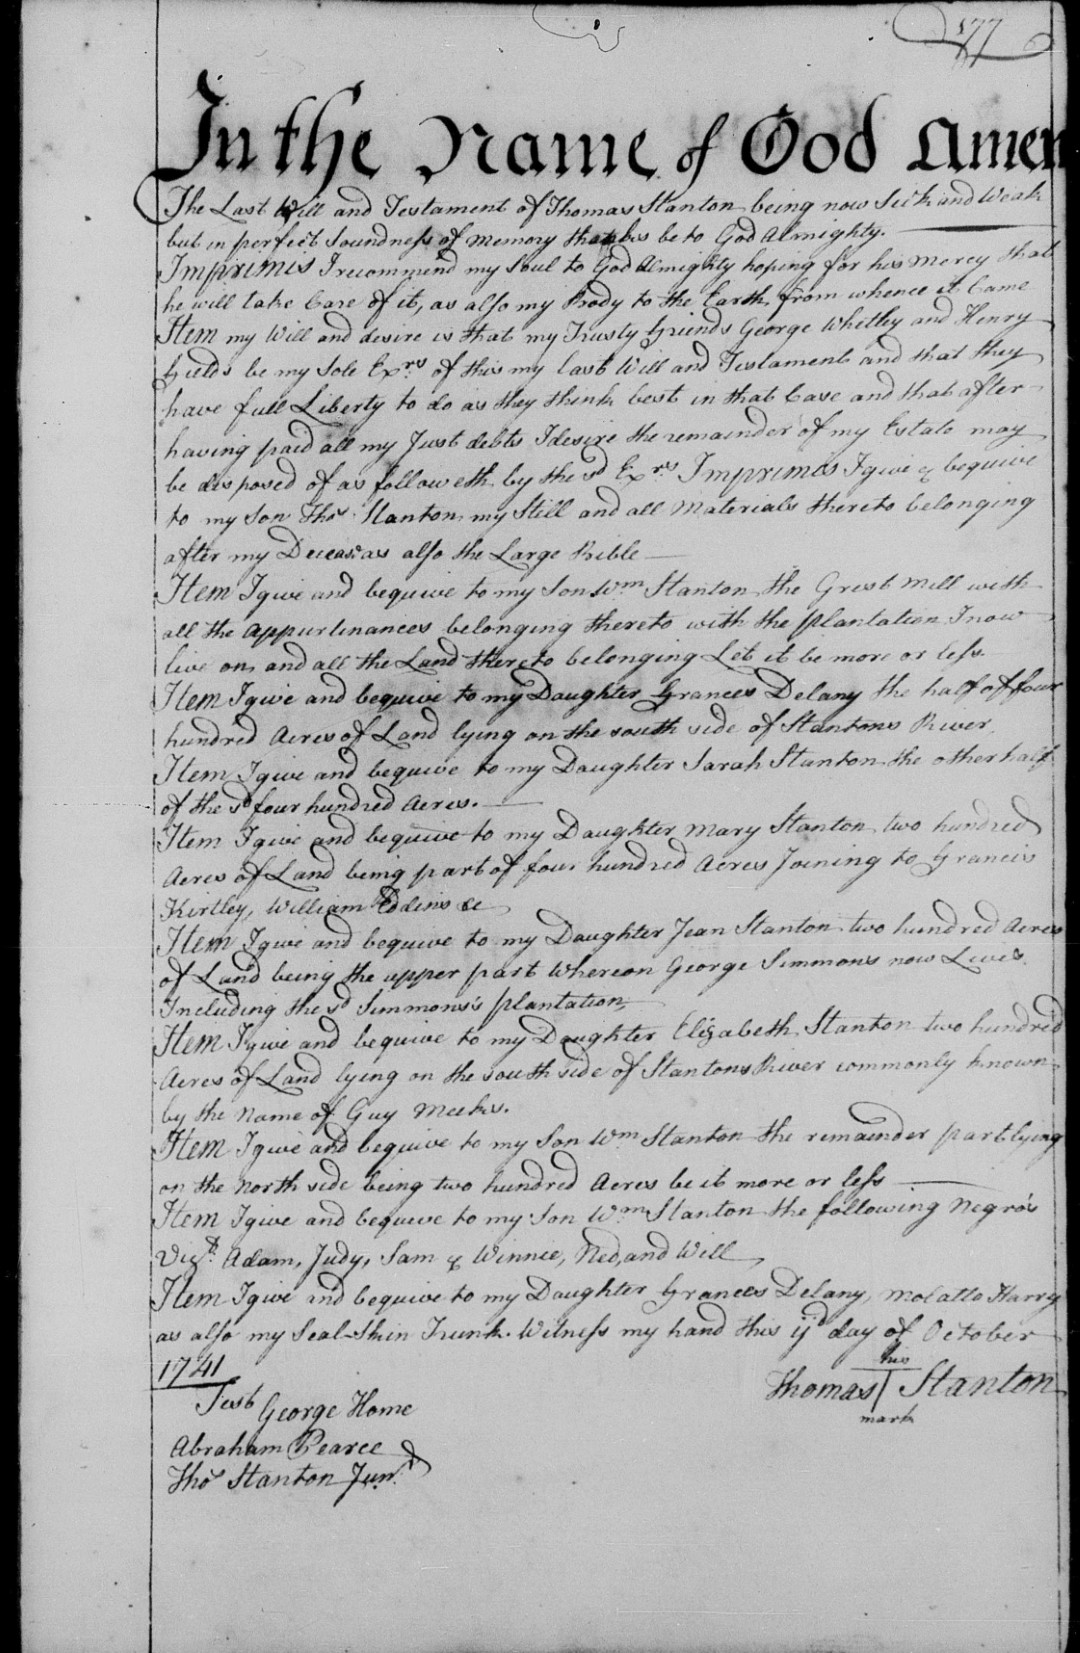 177
In the Name of God Amen
The Last Will and Testament of Thomas Stanton being now Sick and Weak
but in perfect Soundness of memory thanks be to God Almighty.
Imprimis I recommend my Soul to God Almighty hoping for his Mercy that
he will take Care of it, as also my Body to the Earth from whence it Came
Item my Will and desire is that my Trusty Friends George Whetley and Henry
Fields be my Sole Exrs of this my last Will and Testament and that they
have full Liberty to do as they think best in that Case and that after
having paid all my Just debts I desire the remainder of my Estate may
be disposed of as followeth by the sd Exrs Imprimis I give & bequive
to my Son Thos Stanton my Still and all Materials thereto belonging
after my Deceas as also the Large Bible
Item I give and bequive to my Son Wm Stanton the Grest Mill with
all the appurtinances belonging thereto with the plantation I now
live on and all the Land thereto belonging Let it be more or less.
Item I give and bequive to my Daughter Frances Delany the half of four
hundred Acres of Land lying on the south side of Stantons River
Item I give and bequive to my Daughter Sarah Stanton the other half
of the sd four hundred Acres.
Item I give and bequive to my Daughter Mary Stanton two hundred
Acres of Land being part of four hundred Acres Joining to Francis
Kirtley, William Eddins &c
Item I give and bequive to my Daughter Jean Stanton two hundred Acres
of Land being the upper part Whereon George Simmons now Lives
Including the sd Simmons's plantation
Item I give and bequive to my Daughter Elizabeth Stanton two hundred
Acres of Land lying on the south side of Stantons River commonly known
by the Name of Guy Meeks.
Item I give and bequive to my Son Wm Stanton the remainder part lying
on the North side being two hundred Acres be it more or less
Item I give and bequive to my Son Wm Stanton the following Negro's
Vizt. Adam, Judy, Sam & Winnie, Ned, and Will
Item I give and bequive to my Daughter Frances Delany, molatto Harry
as also my Seal-Skin Trunk. Witness my hand this ijd day of October
1741
his
Thomas T Stanton
mark
Test George Home
Abraham Pearce
Thos Stanton Junr.